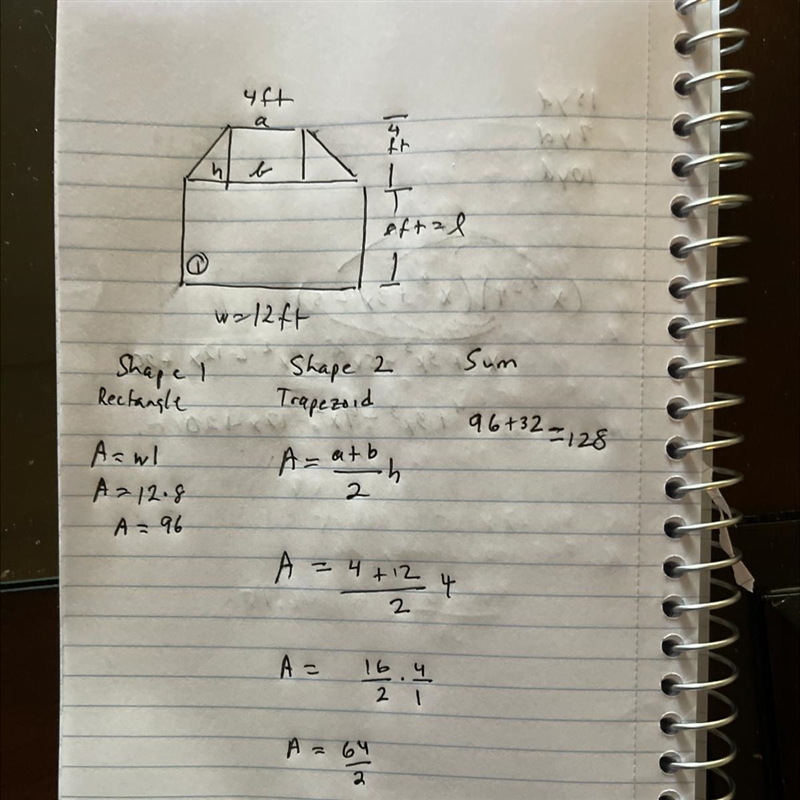 4ft
a
4
ft
h b
8ft = l
①
w=12ft
Shape 1 Shape 2 Sum
Rectangle Trapezoid
96+32=128
A = wl
A = 12·8
A = 96
A = a+b/2 h
A = 4+12/2 4
A = 16/2 · 4/1
A = 64/2